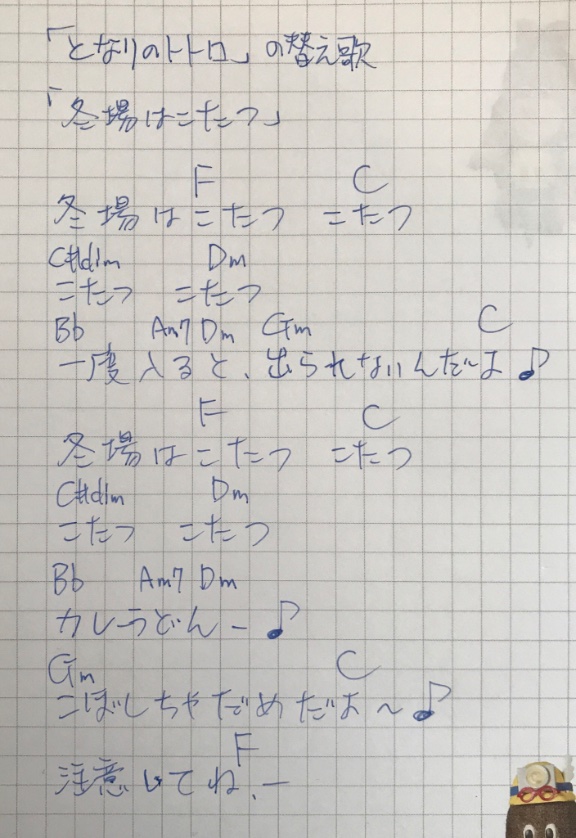 「となりのトトロ」の替え歌
「冬場はこたつ」
F C
冬場はこたつ こたつ
C#dim Dm
こたつ こたつ
Bb Am7 Dm Gm C
一度入ると、出られないんだ〜よ♪
F C
冬場はこたつ こたつ
C#dim Dm
こたつ こたつ
Bb Am7 Dm
カレーうどんー♪
Gm C
こぼしちゃだめだよ〜♪
F
注意してね、ー